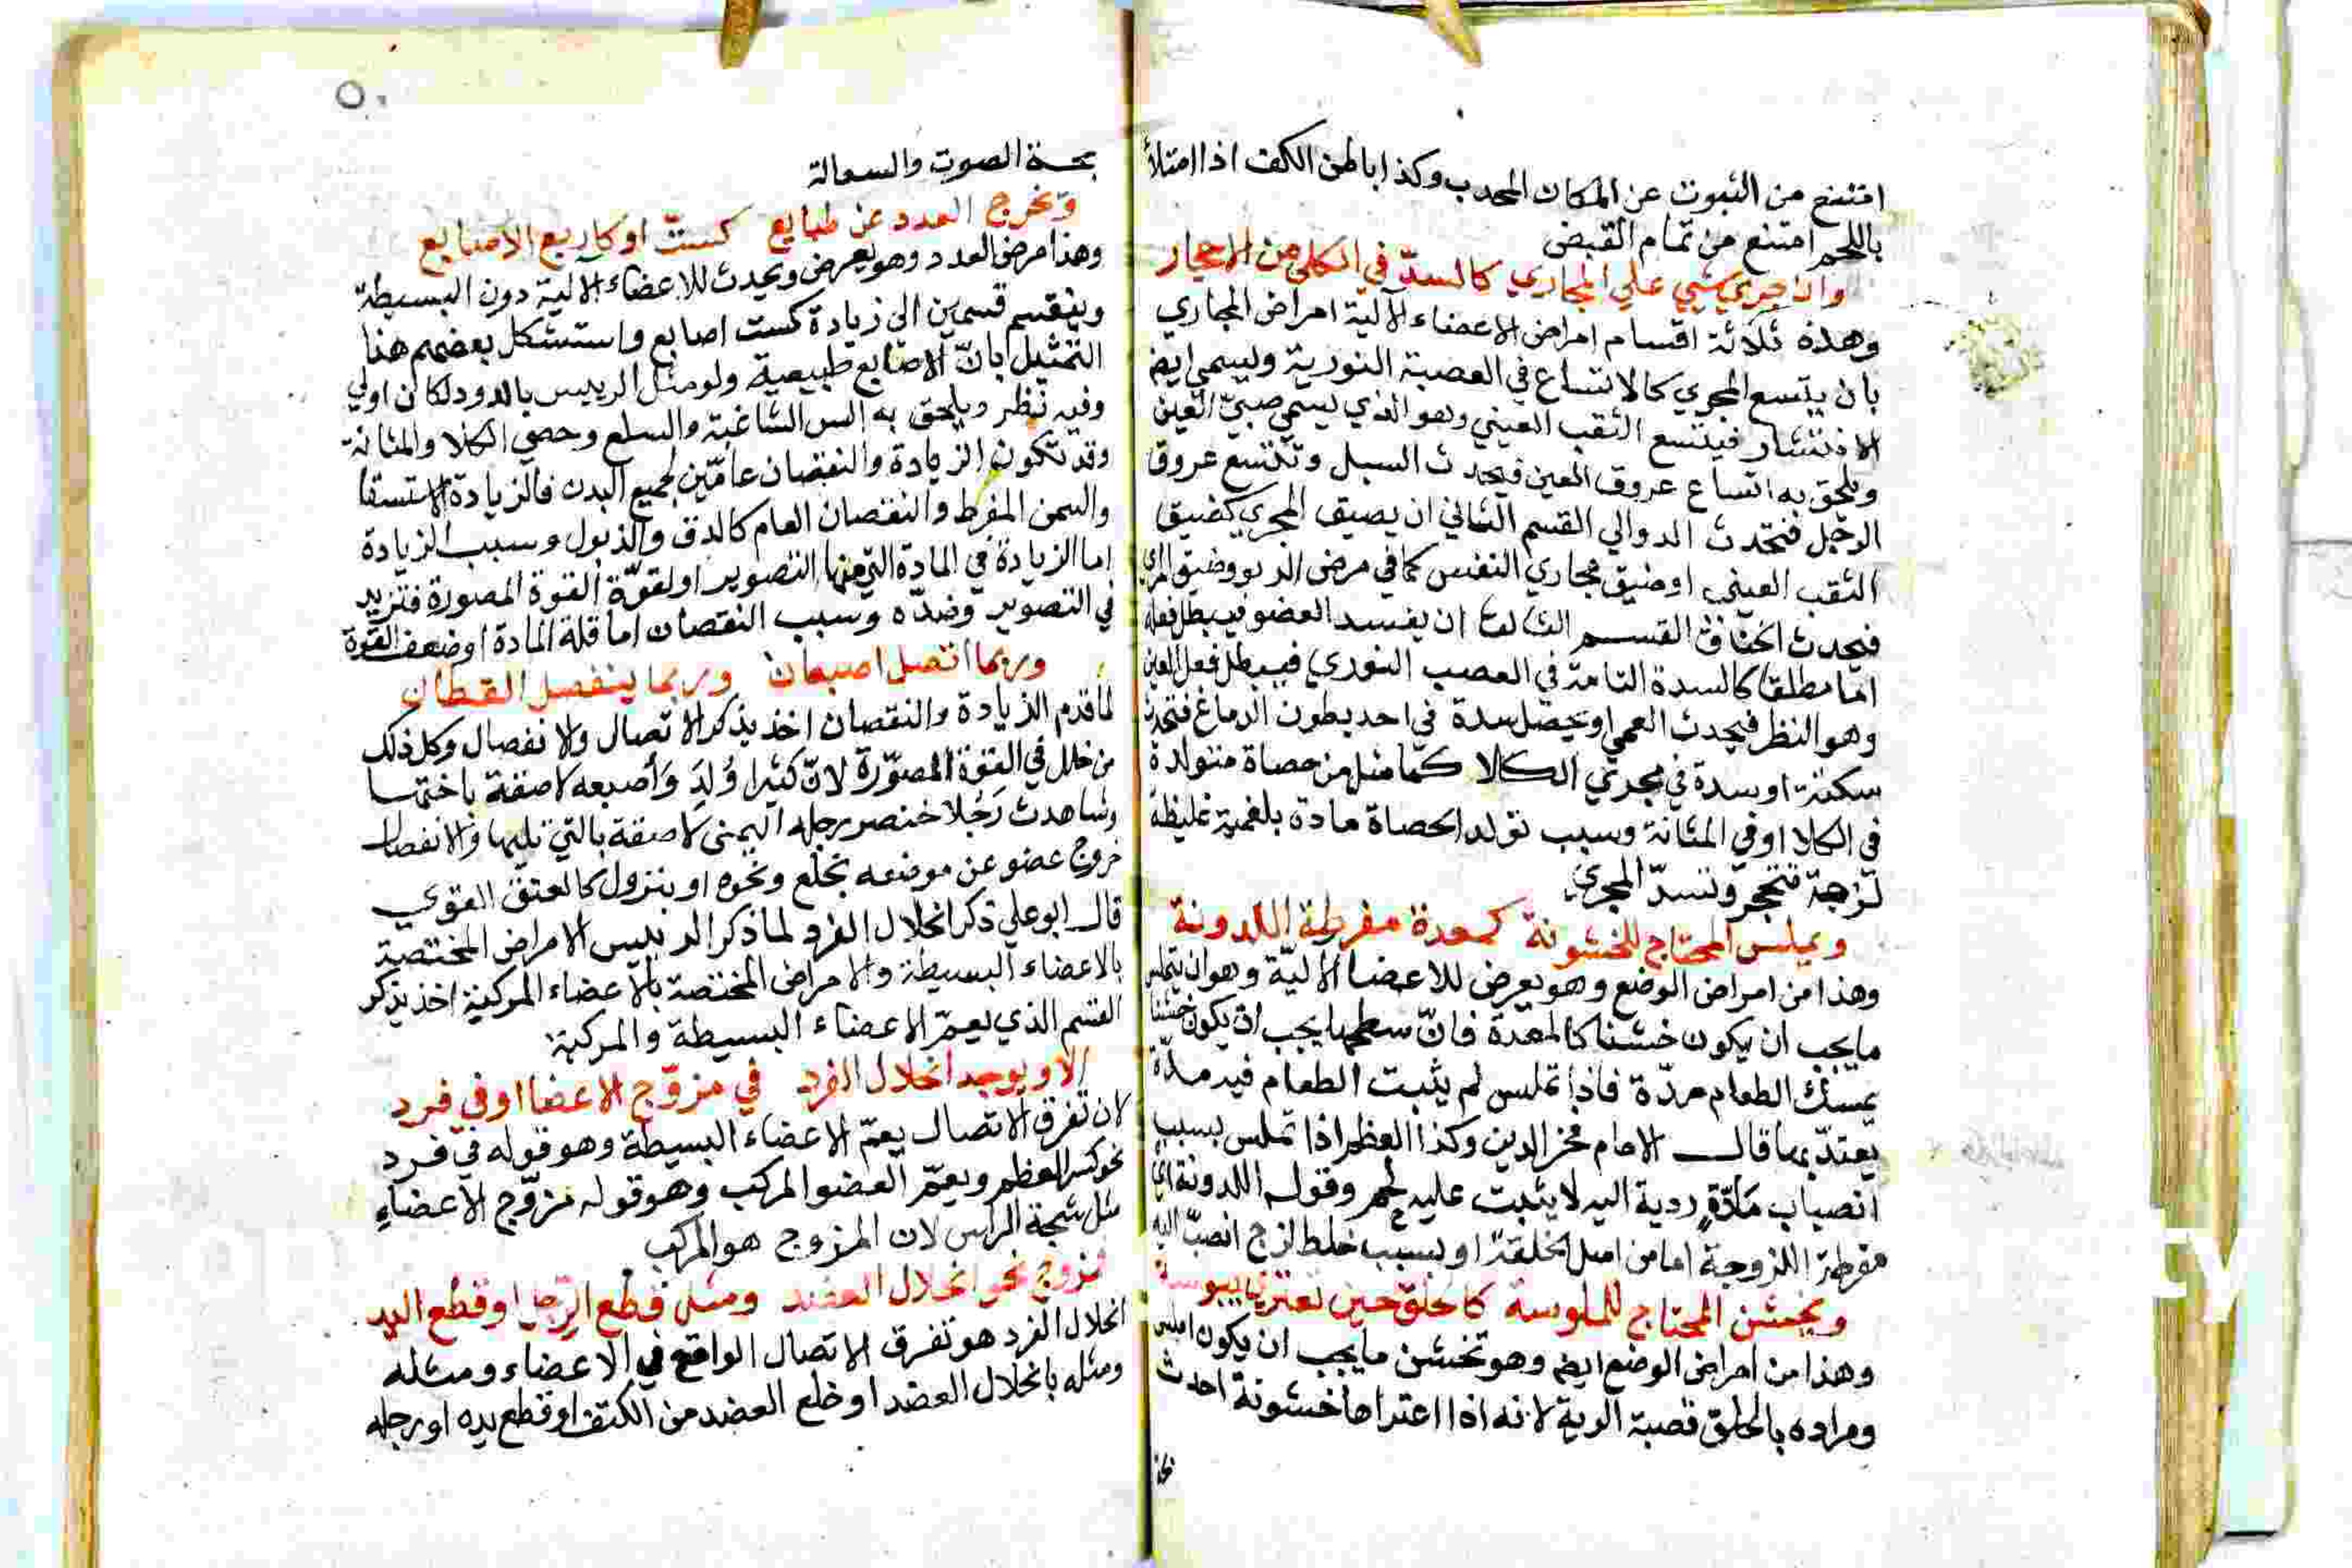 امتنع من الثبوت عن المكان المحدب وكذا باطن الكف اذا امتلأ
باللحم امتنع من تمام القبض
وان جري شيي علي المجاري كالسدّ في الكلي من الاحجار
وهذه ثلاثة اقسام امراض الاعضاء الآلية امراض المجاري
بأن يتسع المجري كالاتساع في العصبة النورية وليسمي ايضا
الانتشار فيتسع الثقب العيني وهو الذي يسمي صبيّ العين
ويلحق به اتساع عروق العين فيحدث السبل وتتسع عروق
الرجل فتحدث الدوالي القسم الثاني ان يضيق المجري كضيق
الثقب العيني اوضيق مجاري النفس كما في مرض الربو وضيق المري
فيحدث الخناق القسم الثالث ان يفسد العضو فيبطل فعله
امّا مطلقا كالسدة التامة في العصب النوري فيبطل فعل العين
وهو النظر فيحدث العمي او يحصل سدة في احد بطون الدماغ فتحدث
سكتة او سدة في مجري الكلا كما مثل من حصاة متولدة
في الكلا او في المثانة وسبب تولد الحصاة مادة بلغمية غليظة
لزجة تتحجر وتسدّ المجري
ويملس المحتاج للخشونة كمعدة مفرطة اللدونة
وهذا من امراض الوضع وهو يعرض للاعضا الاليّة وهو ان يتملس
مايجب ان يكون خشنا كالمعدة فانّ سطحها يجب ان يكون خشنا
يمسك الطعام مدّة فاذا تملس لم يثبت الطعام فيه مدّة
يعتدّ بها قال الامام فخر الدين وكذا العظم اذا تملس بسبب
انصباب مادّةٍ ردية اليه لا يثبت عليه لحم وقوله اللدونة اي
مفرطة اللزوجة اما من اصل الخلقة او بسبب خلط لزج انصبّ اليه
ويخشن المحتاج للملوسة كالحلق حين تعتريه يبوسة
وهذا من امراض الوضع ايضا وهو تخشن مايجب ان يكون املس
ومراده بالحلق قصبة الرية لانه اذا اعتراها خشونة احدث
بحة الصوت والسعالة
وتخرج العدد عن طبايع كستّ او كاربع الاصابع
وهذا مرض العدد وهو يعرض ويحدث للاعضاء الالية دون البسيطة
وينقسم قسمين الي زيادة كست اصابع واستشكل بعضهم هذا
التمثيل بانّ الاصابع طبيعية ولو مثل الرييس بالدود لكان اولي
وفيه نظر ويلحق به السن الشاغية والسلع وحصي الكلا والمثانة
وقد تكون الزيادة والنقصان عامّين لجميع البدن فالزيادة الاستسقا
والسمن المفرط والنقصان العام كالدق والذبول وسبب الزيادة
اما الزيادة في المادة التي منها التصوير او لقوّة القوة المصورة فتزيد
في التصوير وضدّه وسبب النقصان اما قلة المادة اوضعف القوة
وربما اتصل اصبعان وربما ينفصل القطان
لما قدم الزيادة والنقصان اخذ يذكر الاتصال والانفصال وكل ذلك
من خلل في القوة المصوّرة لانّ كثيرا وُلِدَ وَأصبعه لاصقة باختها
وشاهدت رَجُلا خنصر رجله اليمني لاصقة بالتي تليها والانفصال
خروج عضو عن موضعه بخلع ونحوه او بنزول كالفتق القوي
قال ابوعلي ذكر انحلال الفرد لما ذكر الرييس الامراض المختصة
بالاعضاء البسيطة والامراض المختصة بالاعضاء المركبة اخذ يذكر
القسم الذي يعمّ الاعضاء البسيطة والمركبة
الا ويوجد انحلال الفرد في مزوّج الاعضا او في فرد
لان تفرق الاتصال يعمّ الاعضاء البسيطة وهو قوله في فرد
نحو كسر العظم ويعمّ العضو المركب وهو قوله مزوّج الاعضاءِ
مثل شجة الراس لان المزوج هو المركب
مزوج نحو انحلال العضد ومثل قطع الرجل او قطع اليد
انحلال الفرد هو تفرق الاتصال الواقع في الاعضاء ومثله
ومثله بانحلال العضد او خلع العضد من الكتف او قطع يده او رجله